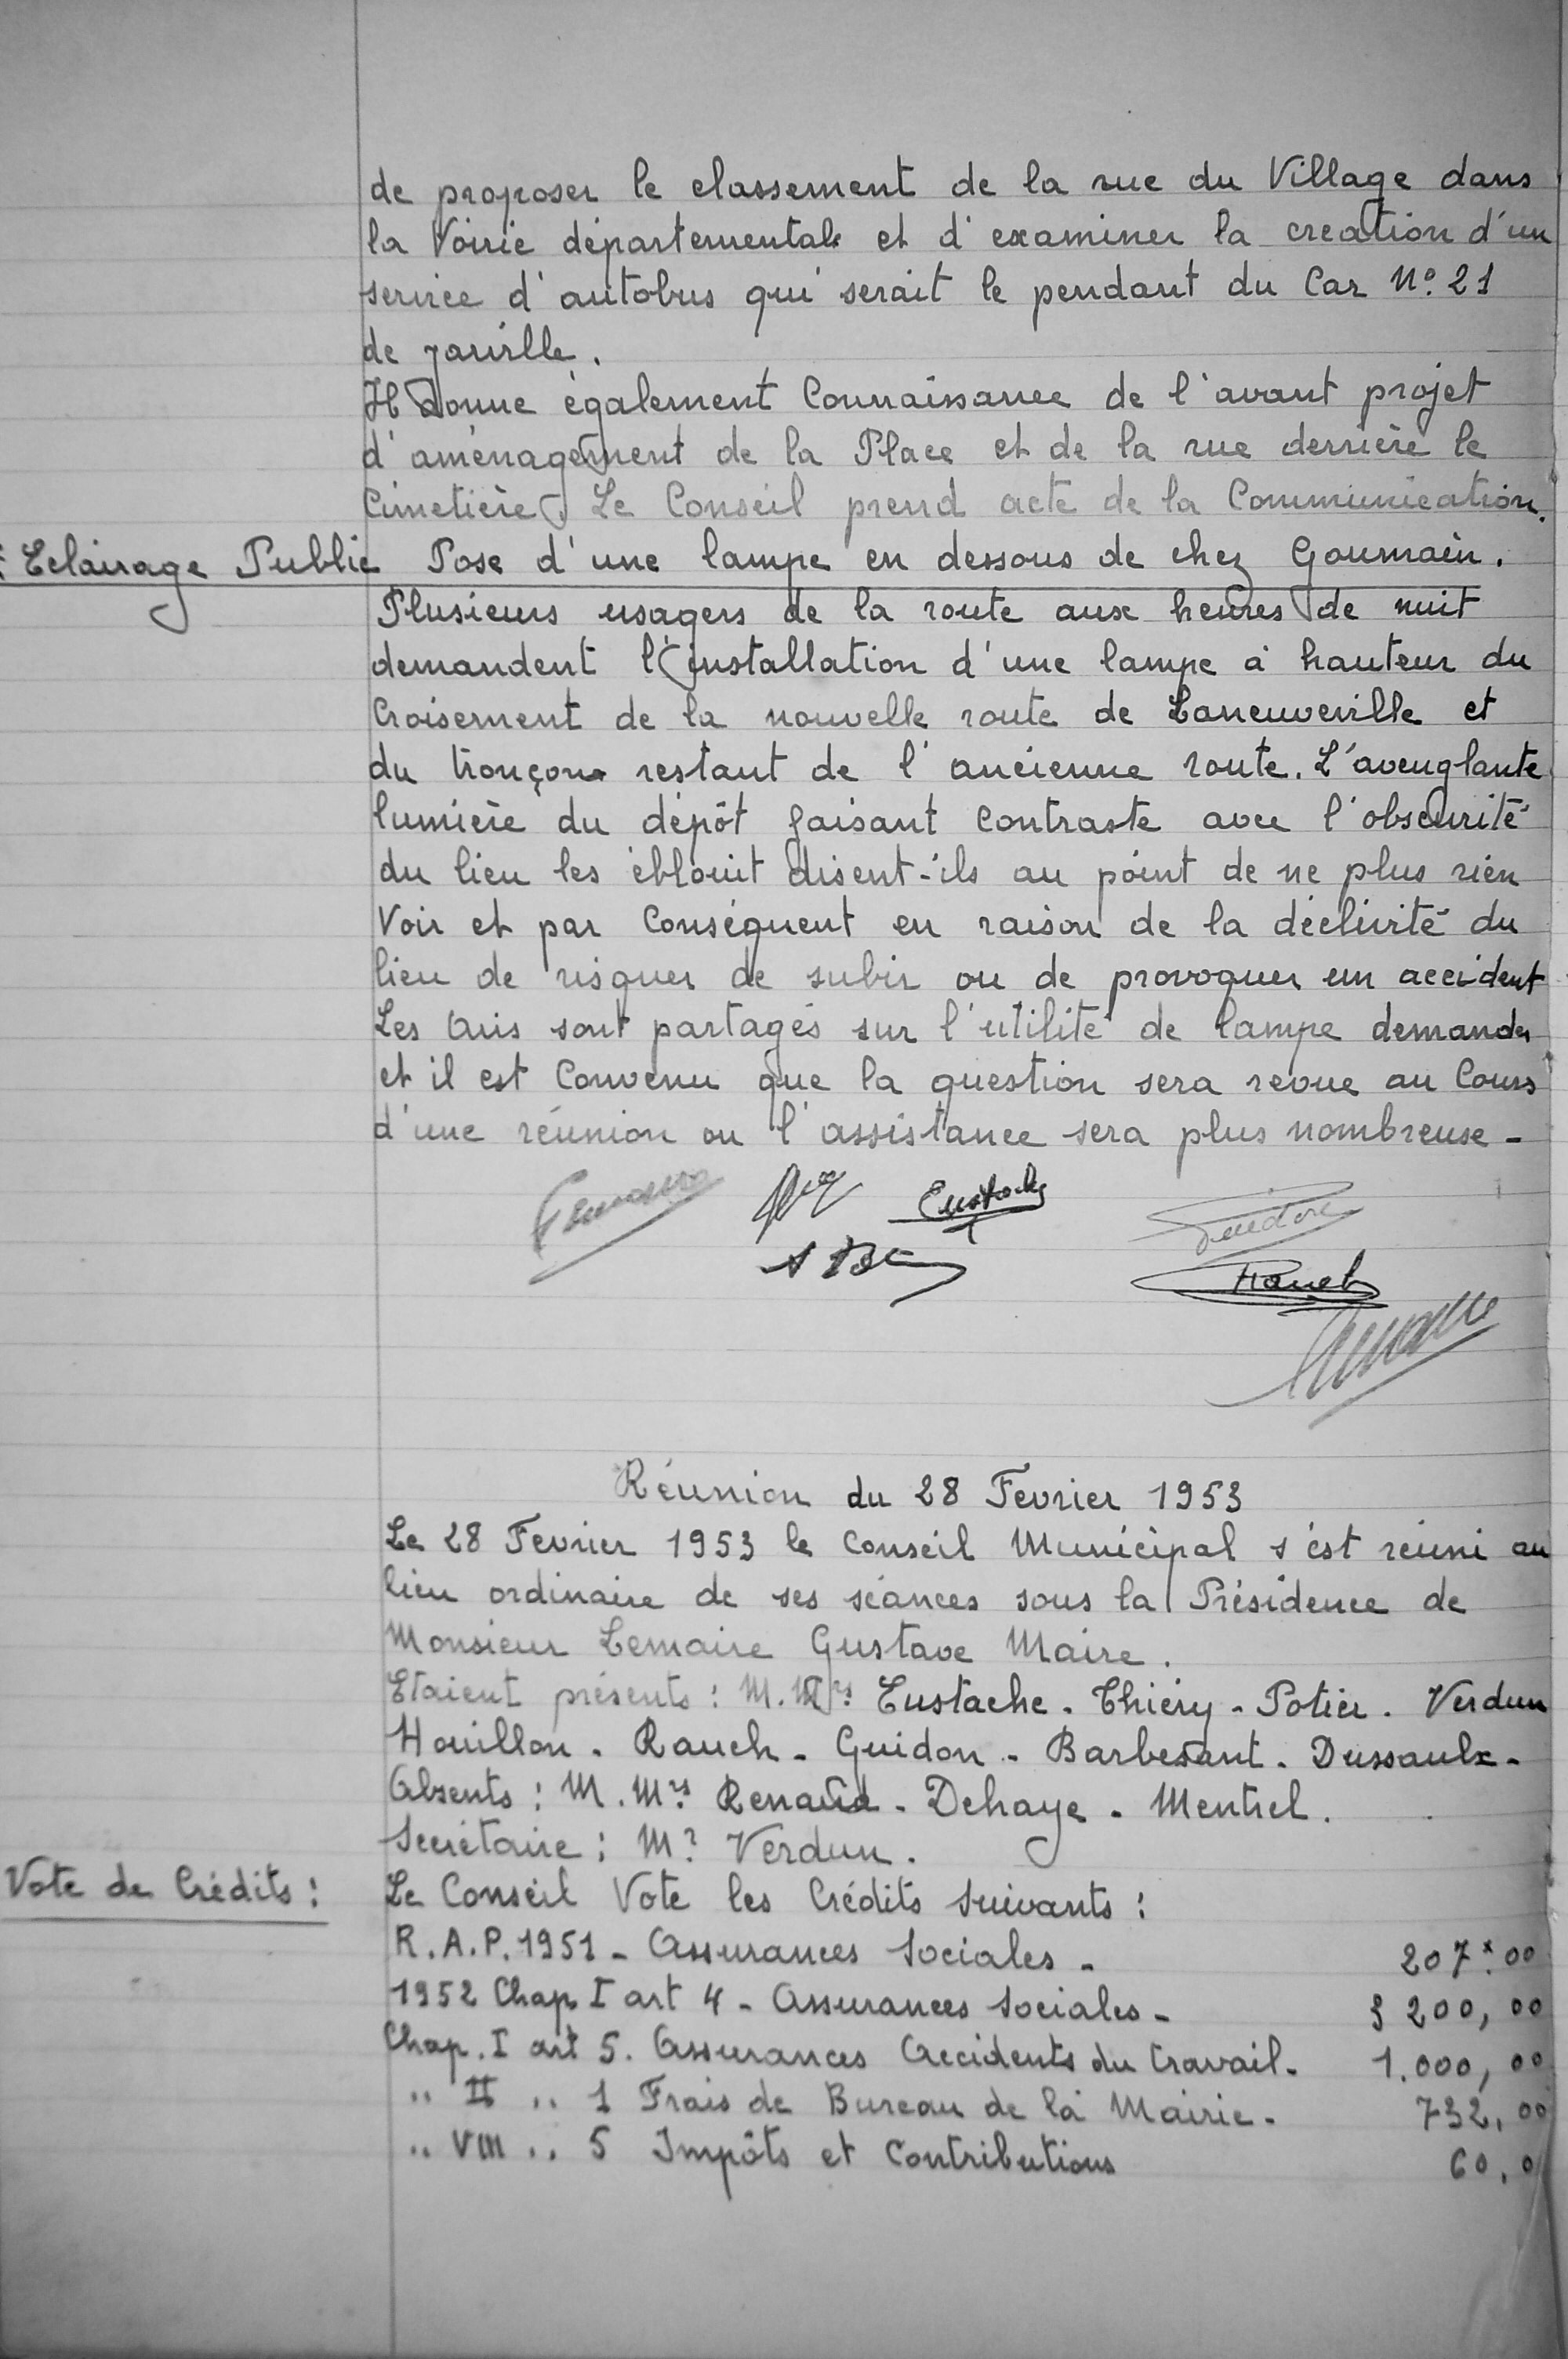 de proposer le classement de la rue du Village dans
la Voirie départementale et d'examiner la creation d'un
service d'autobus qui serait le pendant du Car N° 21
de Jarville.
Il donne également Connaissance de l'avant projet
d'aménagement de la Place et de la rue derrière le
Cimetière. Le Conseil prend acte de la Communication.
Eclairage Public Pose d'une lampe en dessous de chez Goumain.
Plusieurs usagers de la route aux heures de nuit
demandent l'installation d'une lampe à hauteur du
Croisement de la nouvelle route de Laneuveville et
du tronçon restant de l'ancienne route. L'aveuglante
lumière du dépôt faisant Contraste avec l'obscurité
du lieu les éblouit disent-ils au point de ne plus rien
Voir et par Conséquent en raison de la déclivité du
lieu de risquer de subir ou de provoquer un accident
Les Avis sont partagés sur l'utilité de lampe demandée
et il est Convenu que la question sera revue au Cours
d'une réunion ou l'assistance sera plus nombreuse -
Eustache
Guidon
Rauch
Réunion du 28 Fevrier 1953
Le 28 Fevrier 1953 le Conseil Municipal s'est réuni au
lieu ordinaire de ses séances sous la Présidence de
Monsieur Lemaire Gustave Maire.
Etaient présents : M.Mrs Eustache - Thiéry - Potier - Verdun
Houillon - Rauch - Guidon - Barbesant - Dussaulx -
Absents : M.Mrs Renaud - Dehaye - Mentrel.
Secrétaire : Mr Verdun.
Vote de Crédits : Le Conseil Vote les Crédits suivants :
R.A.P. 1951 - Assurances Sociales - 207,00
1952 Chap I art 4 - Assurances Sociales - 3 200,00
Chap. I art 5. Assurances Accidents du travail - 1.000,00
" II " 1 Frais de Bureau de la Mairie - 732,00
" VIII " 5 Impôts et Contributions 60,0